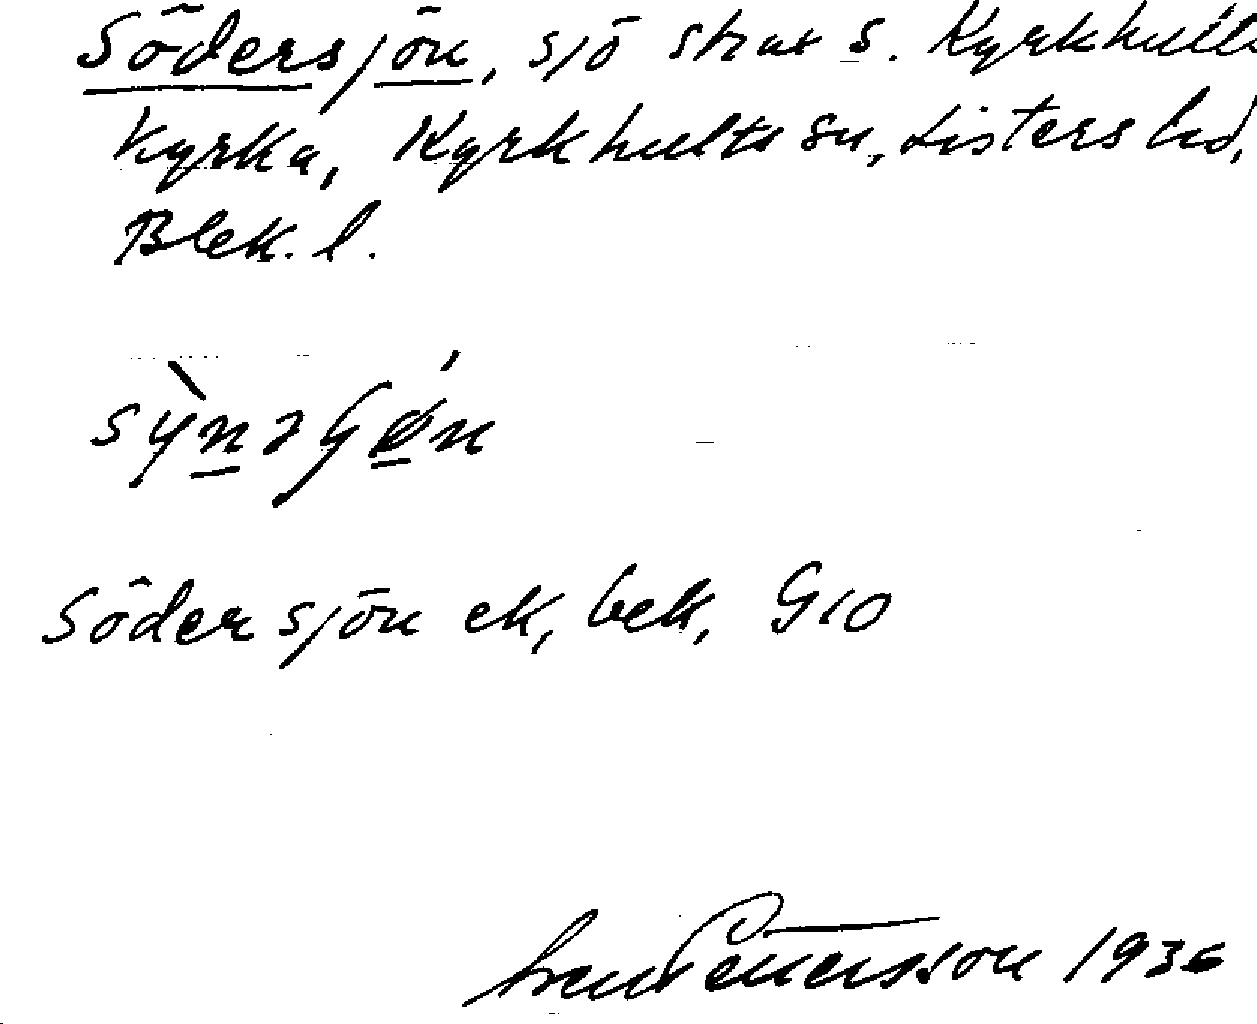 Södersjön, sjö strax S. Kyrkhults
Kyrka, Kyrkhults sn, Listers hd,
Blek. l.
Södersjön ek, bl, G 10
Pettersson 1936